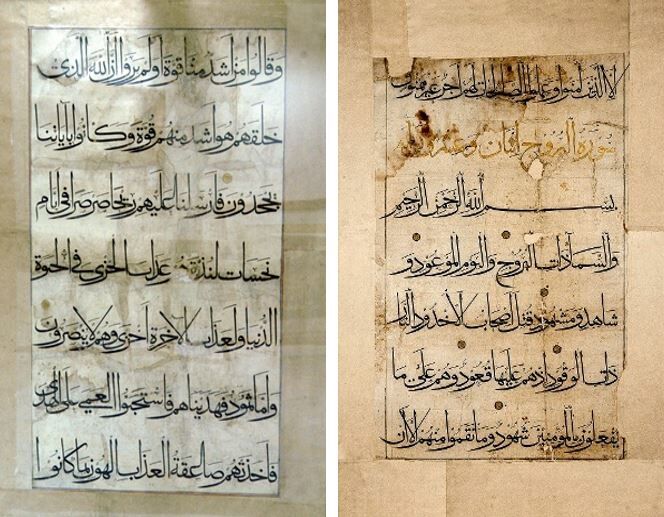 الا الذين آمنوا وعملوا الصالحات لهم اجر غير ممنون
سورة البروج اثنان وعشرون
بسم الله الرحمن الرحيم
والسماء ذات البروج واليوم الموعود و
شاهد ومشهود قتل اصحاب الاخدود النار
ذات الوقود اذ هم عليها قعود وهم على ما
يفعلون بالمؤمنين شهود وما نقموا منهم الا ان
وقالوا من اشد منا قوة اولم يروا ان الله الذي
خلقهم هو اشد منهم قوة وكانوا باياتنا
يجحدون فارسلنا عليهم ريحا صرصرا في ايام
نحسات لنذيقهم عذاب الخزي في الحيوة
الدنيا ولعذاب الاخرة اخزى وهم لا ينصرون
واما ثمود فهديناهم فاستحبوا العمى على الهدى
فاخذتهم صاعقة العذاب الهون بما كانوا